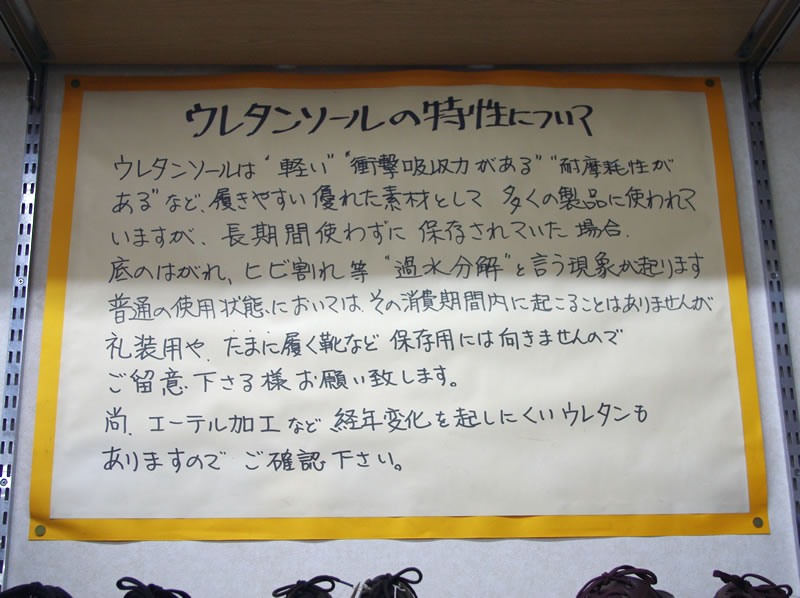 ウレタンソールの特性について
ウレタンソールは“軽い”“衝撃吸収力がある”“耐摩耗性が
ある”など、履きやすい優れた素材として 多くの製品に使われて
いますが、長期間使わずに 保存されていた 場合、
底のはがれ、ヒビ割れ 等 “過水分解”と言う現象が起ります
普通の使用状態、においては、その消費期間内に起こることはありませんが
礼装用や、たまに履く靴など 保存用には向きませんので
ご留意 下さる様 お願い致します。
尚、エーテル加工など 経年変化を起しにくいウレタンも
ありますので ご確認下さい。